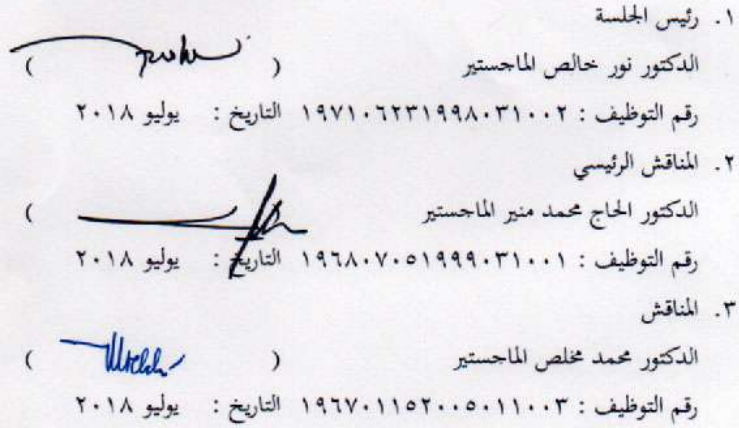 ١. رئيس الجلسة
الدكتور نور خالص الماجستير ( )
رقم التوظيف : ١٩٧١٠٦٢٣١٩٩٨٠٣١٠٠٢ التاريخ : يوليو ٢٠١٨
٢. المناقش الرئيسي
الدكتور الحاج محمد منير الماجستير (
رقم التوظيف : ١٩٦٨٠٧٠٥١٩٩٩٠٣١٠٠١ التاريخ : يوليو ٢٠١٨
٣. المناقش
الدكتور محمد مخلص الماجستير ( )
رقم التوظيف : ١٩٦٧٠١١٥٢٠٠٥٠١١٠٠٣ التاريخ : يوليو ٢٠١٨